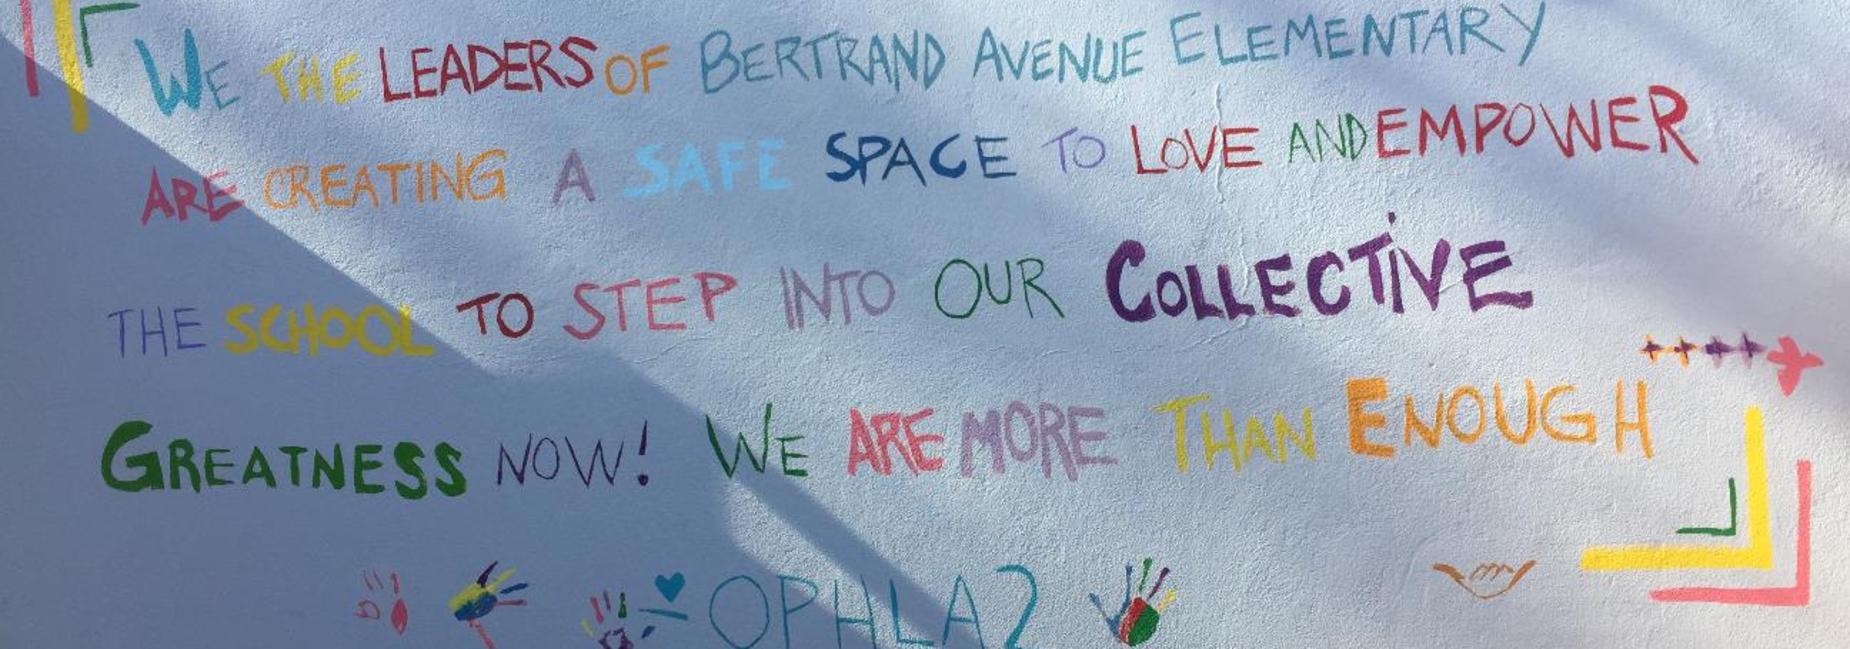 WE THE LEADERS OF BERTRAND AVENUE ELEMENTARY
ARE CREATING A SAFE SPACE TO LOVE AND EMPOWER
THE SCHOOL TO STEP INTO OUR COLLECTIVE
GREATNESS NOW! WE ARE MORE THAN ENOUGH
OPHLA2